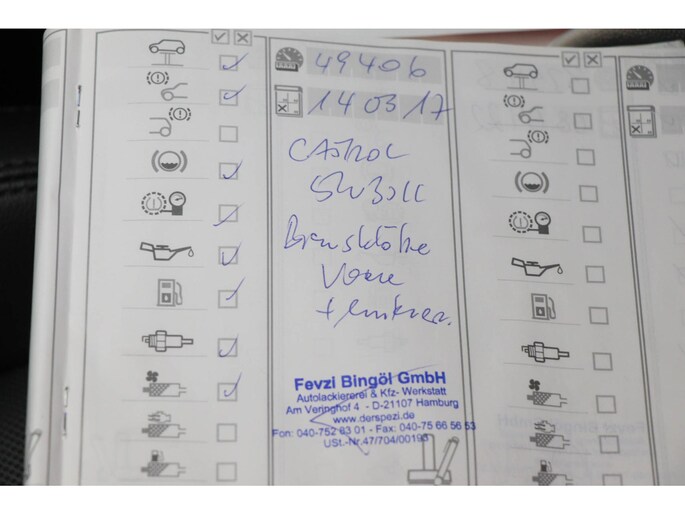 49406
140317
CASTROL
5W30LL
Bremsklötze
Vorne
+ hinten.
Fevzi Bingöl GmbH
Autolackiererei & Kfz- Werkstatt
Am Veringhof 4 - D-21107 Hamburg
www.derspezi.de
Fon: 040-752 63 01 - Fax: 040-75 66 56 53
USt.-Nr.47/704/00193